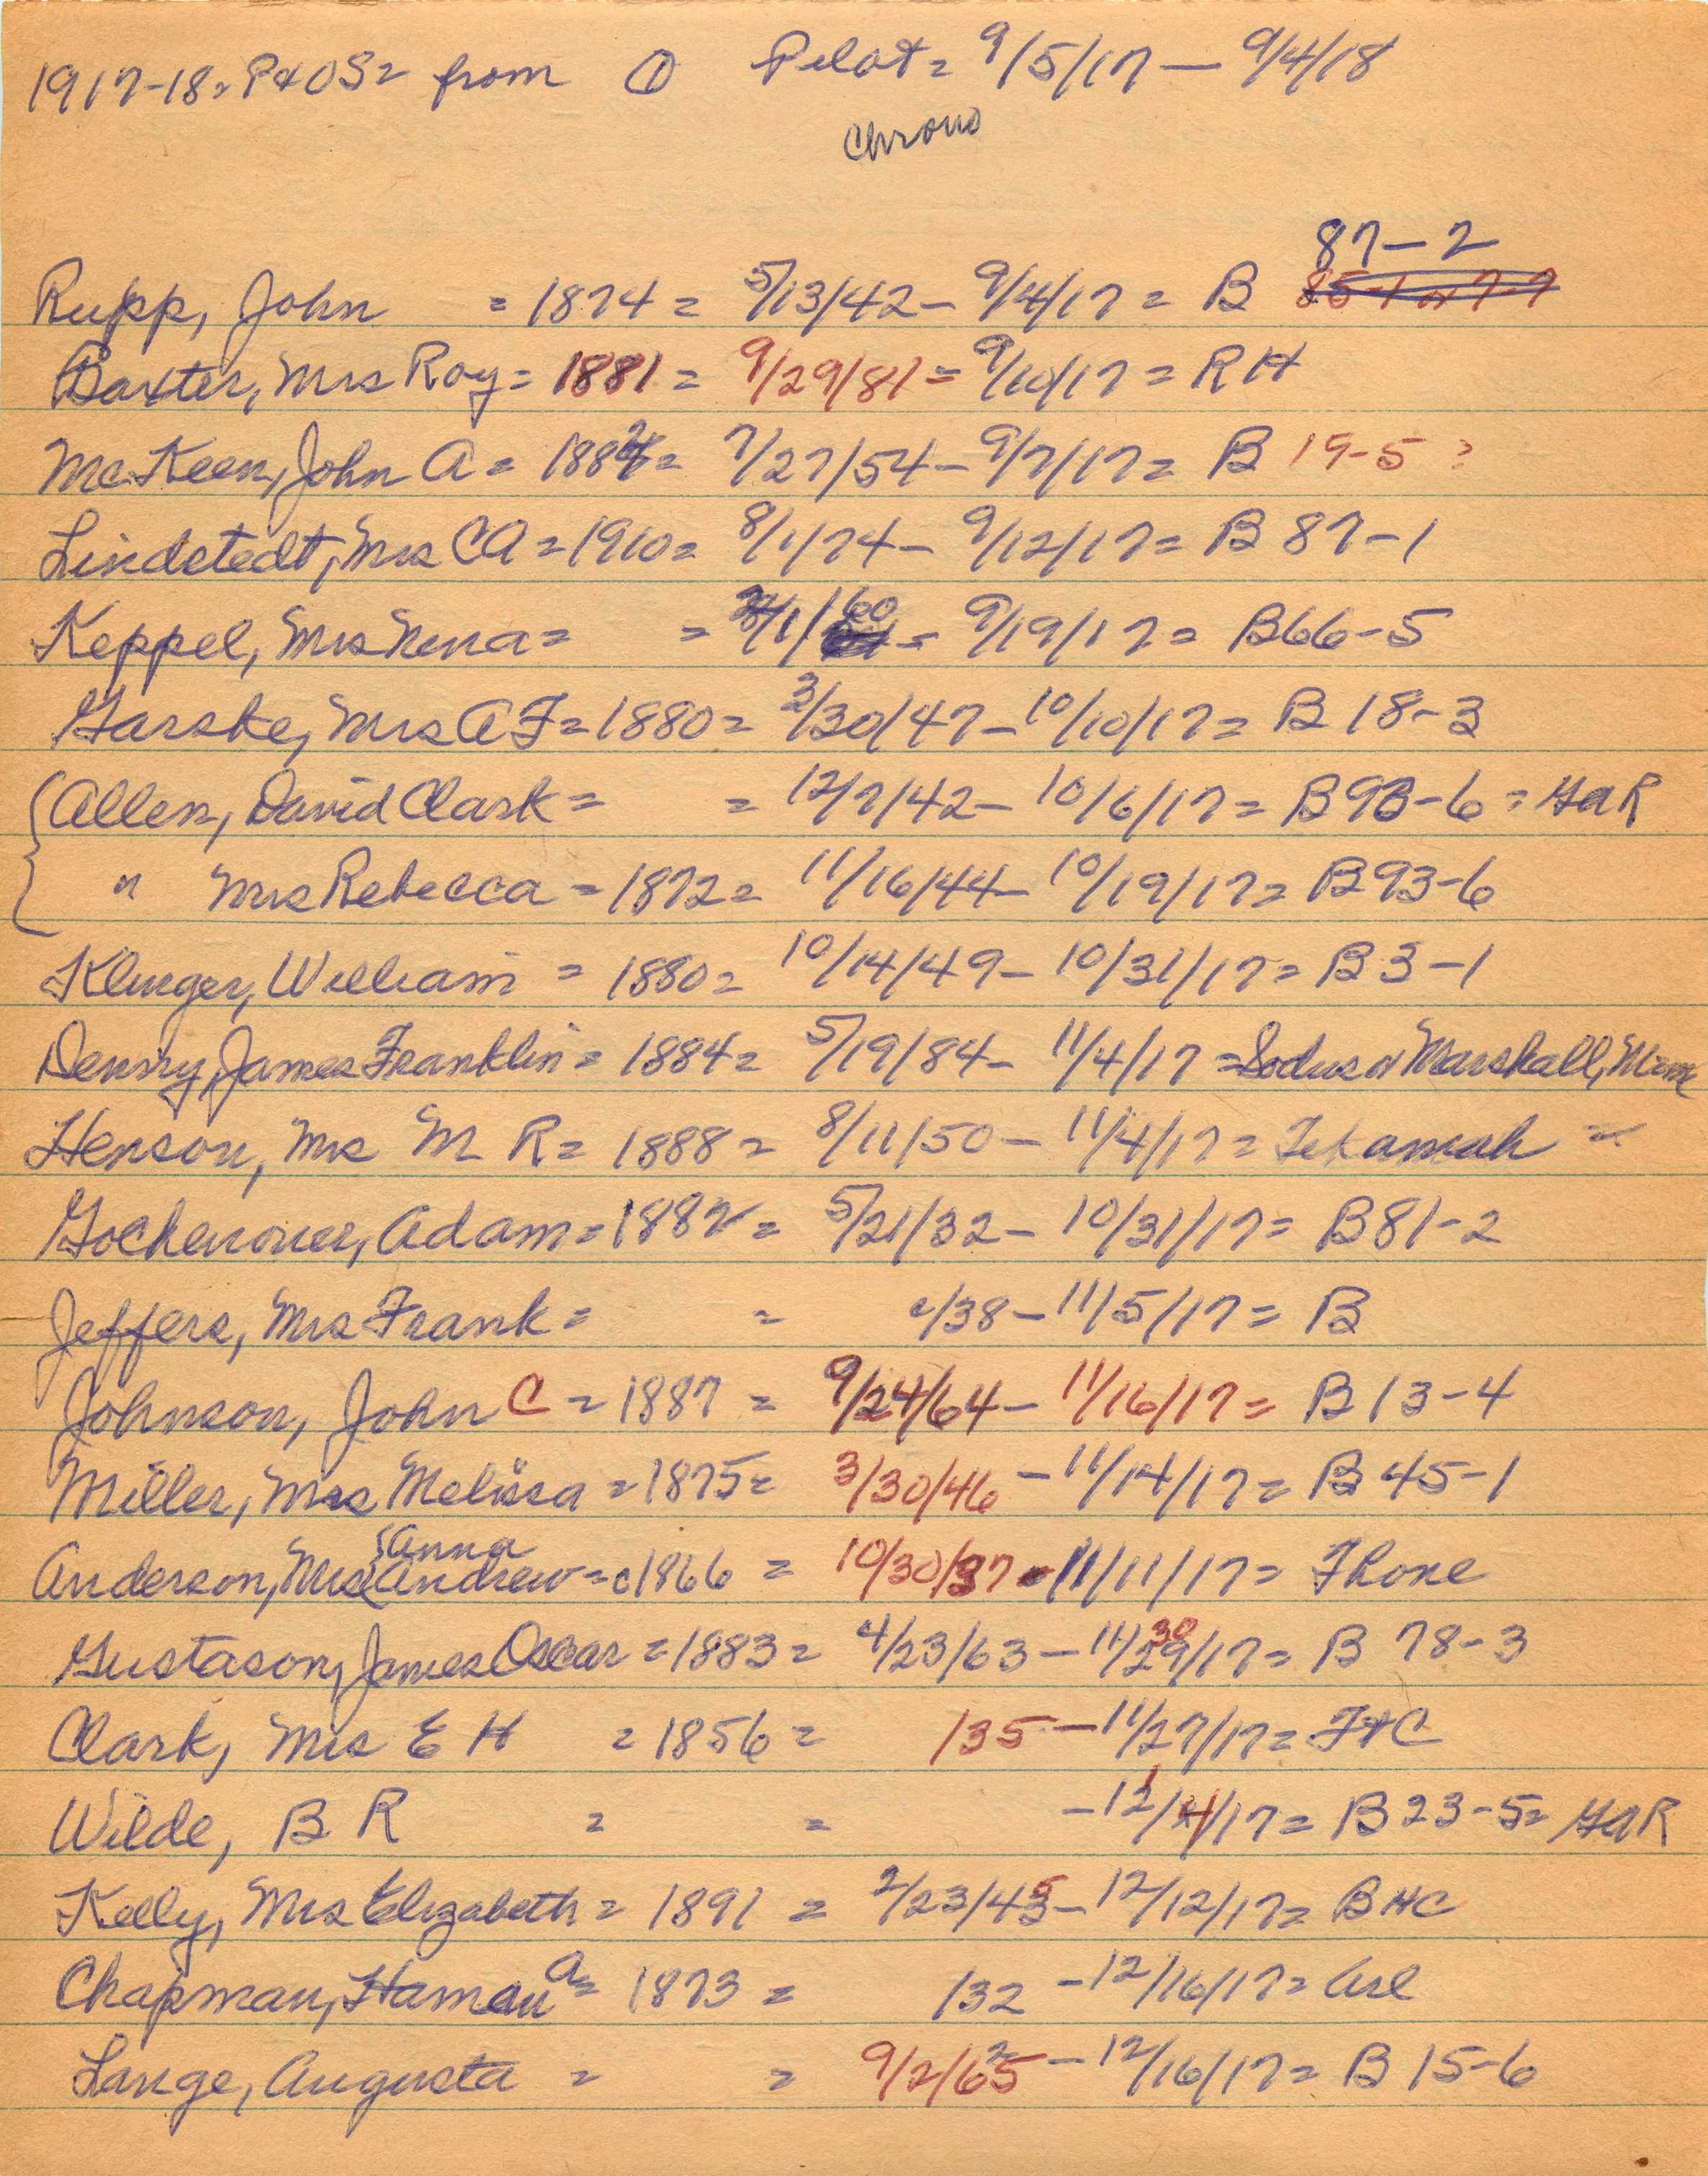 1917-18 = P & OS = from ① Pilot = 9/5/17 — 9/4/18
Chrono
87-2
Rupp, John = 1874 = 5/13/42 - 9/4/17 = B 85-1 or 7-7
Baxter, Mrs Roy = 1881 = 9/29/81 = 9/10/17 = RH
McKeen, John A = 1884 = 7/27/54 - 9/7/17 = B 19-5 ?
Lindstedt, Mrs CA = 1910 = 8/1/74 - 9/12/17 = B 87-1
Keppel, Mrs Nena = = /1/60 - 9/19/17 = B66-5
Garske, Mrs A F = 1880 = 3/30/47 - 10/10/17 = B 18-3
Allen, David Clark = = 12/7/42 - 10/6/17 = B93-6 = GAR
" Mrs Rebecca = 1872 = 11/16/44 - 10/19/17 = B93-6
Klinger, William = 1880 = 10/14/49 - 10/31/17 = B3-1
Denny, James Franklin = 1884 = 5/19/84 - 11/4/17 = Sodus or Marshall, Minn
Henson, Mrs M R = 1888 = 8/11/50 - 11/4/17 = Tekamah =
Gochenouer, Adam = 1882 = 5/21/32 - 10/31/17 = B81-2
Jeffers, Mrs Frank = = c/38 - 11/5/17 = B
Johnson, John C = 1887 = 9/24/64 - 11/16/17 = B 13-4
Miller, Mrs Melissa = 1875 = 3/30/46 - 11/14/17 = B 45-1
Anna
Anderson, Mrs Andrew = c1866 = 10/30/37 - 11/11/17 = Fhone
30
Gustason, James Oscar = 1883 = 4/23/63 - 11/29/17 = B 78-3
Clark, Mrs E H = 1856 = /35 - 11/27/17 = FtC
Wilde, B R = = - 12/4/17 = B 23-5 = GAR
Kelly, Mrs Elizabeth = 1891 = 2/23/45 - 12/12/17 = BHC
Chapman, Haman A = 1873 = /32 - 12/16/17 = Arl
Lange, Augusta = = 9/2/65 - 12/16/17 = B 15-6